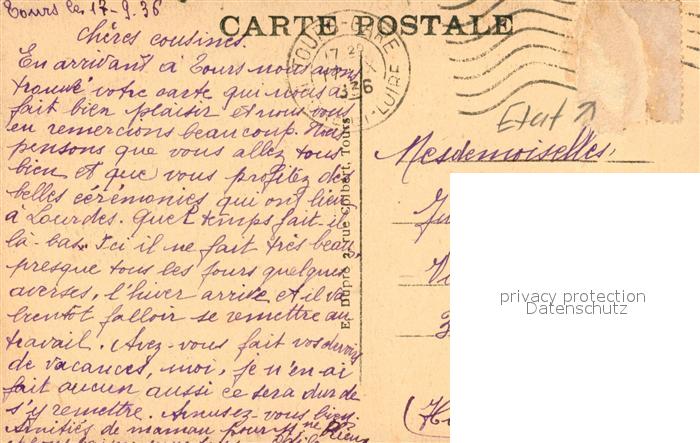 Tours le, 17-9.36
CARTE POSTALE
Chères cousines.
En arrivant à Tours nous avons
trouvé votre carte qui nous a
fait bien plaisir et nous vous
en remercions beaucoup. Nous
pensons que vous allez tous
bien et que vous profitez des
belles cérémonies qui ont lieu
à Lourdes. Quel temps fait-il
là-bas. Ici il ne fait très beau,
presque tous les jours quelques
averses, l'hiver arrive et il va
bientôt falloir se remettre au
travail. Avez-vous fait vos devoirs
de vacances, moi, je n'en ai
fait aucun aussi ce sera dur de
s'y remettre. Amusez-vous bien.
Amitiés de maman pour
E. Dupré 2, rue Colbert, Tours
TOURS-GARE
17 29
36
Etat
Mesdemoiselles
privacy protection
Datenschutz